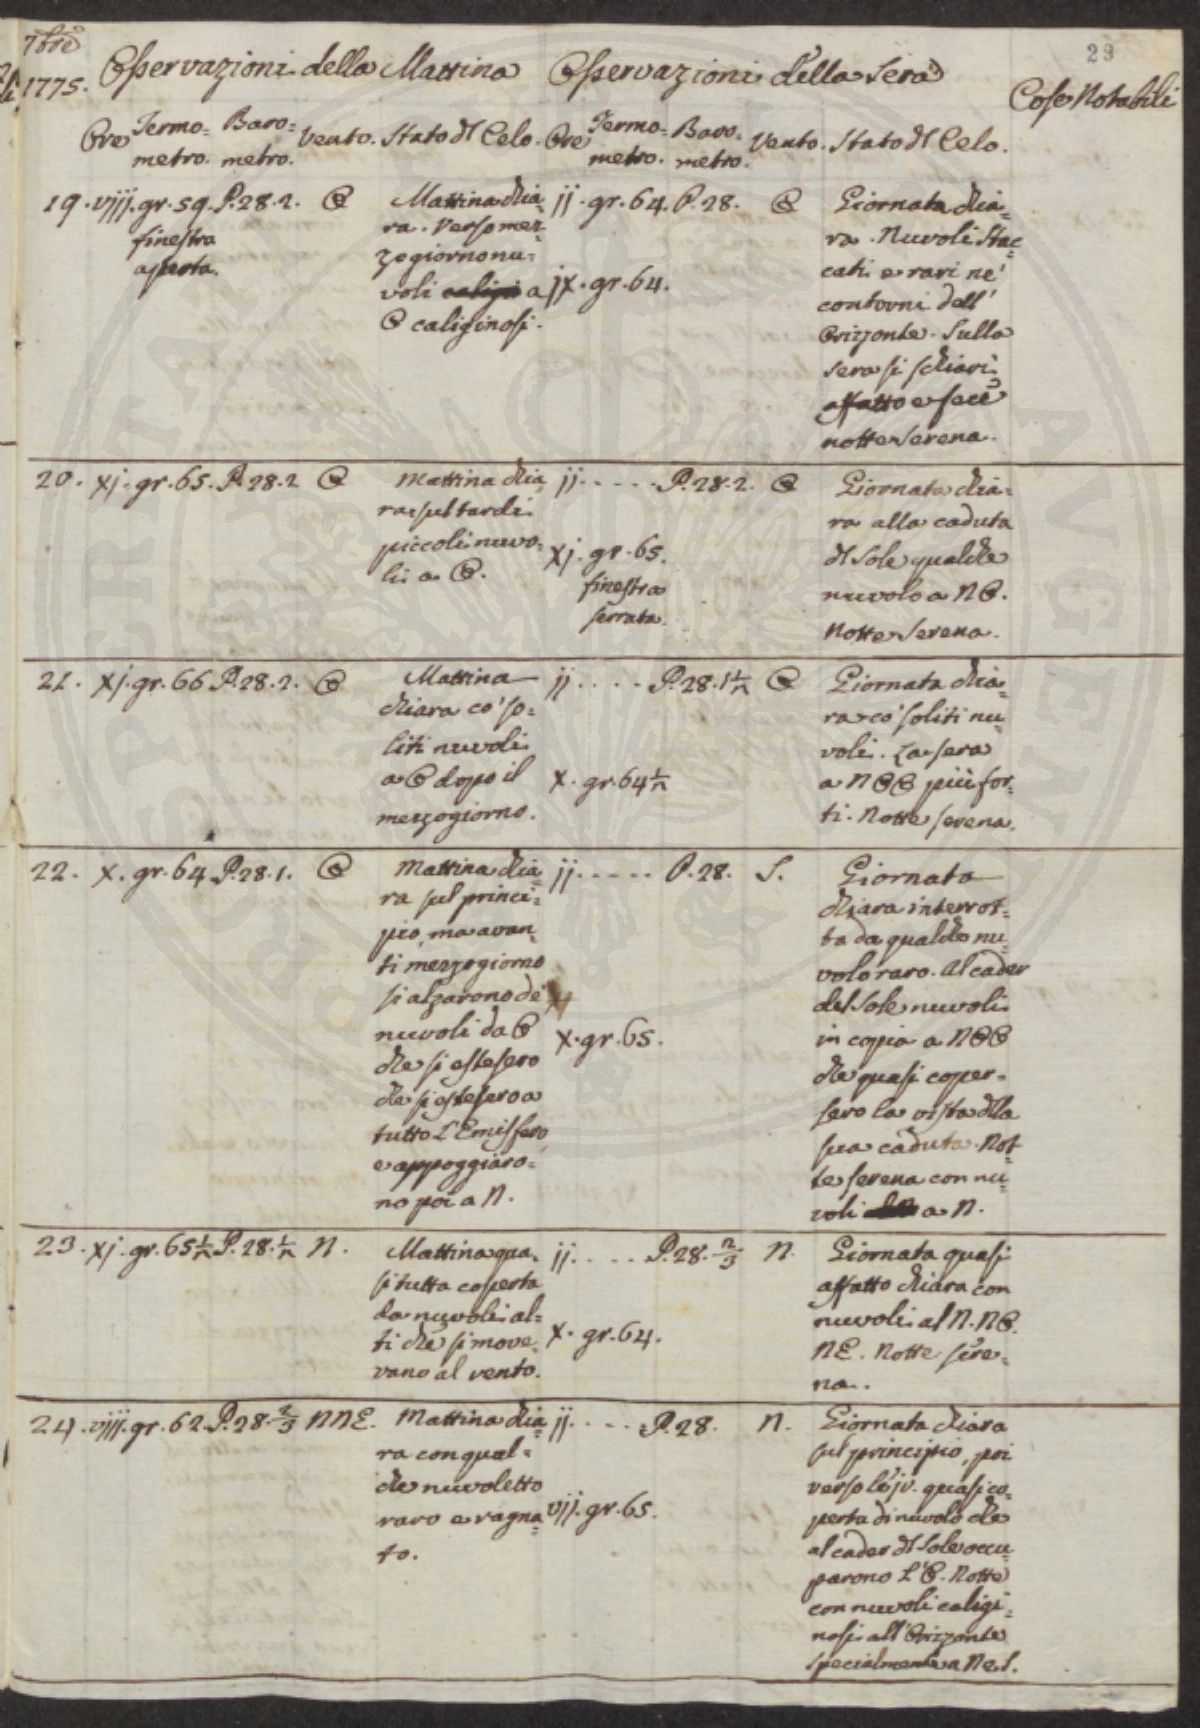 29
7bre
1775. Osservazioni della Mattina Osservazioni della Sera Cose Notabili
Ore Termo= metro. Baro= metro. Vento. Stato dl Celo. Ore Termo= metro. Baro= metro. Vento. Stato dl Celo.
19. viij. gr. 59. P. 28. 2. O
finestra
aperta.
Mattina chia=
ra. Verso mez=
zogiorno nu=
voli a
O caliginosi.
jj. gr. 64. P. 28. O
jx. gr. 64.
Giornata chia=
ra. Nuvoli stac=
cati e rari ne'
contorni dell'
Orizzonte. Sulla
sera si schiarì
affatto e fece
notte serena.
20. xj. gr. 65. P. 28. 2 O
Mattina chia=
ra sul tardi
piccoli nuvo=
li a O.
jj. . . . . P. 28. 2. O
xj. gr. 65.
finestra
serrata.
Giornata chia=
ra alla caduta
dl Sole qualche
nuvolo a NO.
Notte serena.
21. xj. gr. 66 P. 28. 2. O
Mattina
chiara co' so=
liti nuvoli
a O dopo il
mezzogiorno.
jj. . . . . P. 28. 1 1/2 O
x. gr. 64 1/2
Giornata chia=
ra co' soliti nu=
voli. La sera
a NOO più for=
ti. Notte serena.
22. x. gr. 64 P. 28. 1. O
Mattina chia=
ra sul princi=
pio, ma avan=
ti mezzogiorno
si alzarono de'
nuvoli da O
che si estesero
che si estesero a
tutto l'Emisfero,
e appoggiaro=
no poi a N.
jj. . . . . P. 28. S.
x. gr. 65.
Giornata
chiara interrot=
ta da qualche nu=
volo raro. Al cader
del Sole nuvoli
in copia a NOO
che quasi coper=
sero la vista dlla
sua caduta. Not=
te serena con nu=
voli a N.
23. xj. gr. 65 1/2 P. 28. 1/2 N.
Mattina qua=
si tutta coperta
da nuvoli al=
ti che si move=
vano al vento.
jj. . . . . P. 28. 2/3 N.
x. gr. 64.
Giornata quasi
affatto chiara con
nuvoli al N. NO.
NE. Notte sere=
na.
24. viij. gr. 62. P. 28. 2/3 NNE.
Mattina chia=
ra con qual=
che nuvoletto
raro e ragna=
to.
jj. . . . . P. 28. N.
vij. gr. 65.
Giornata chiara
sul principio, poi
verso le jv. quasi co=
perta di nuvoli che
al cader dl Sole occu=
parono l'O. Notte
con nuvoli caligi=
nosi all'Orizzonte
specialmente a N e S.